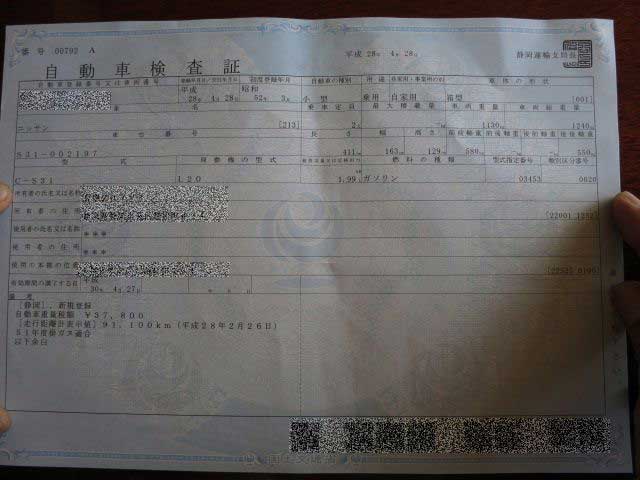 番号 00792 A
平成 28年 4月 28日
静岡運輸支局長
自動車検査証
自動車登録番号又は車両番号 登録年月日/交付年月日 初度登録年月 自動車の種別 用途 自家用・事業用の別 車体の形状
平成 28年 4月 28日 昭和 52年 3月 小型 乗用 自家用 箱型 [001]
車名 乗車定員 最大積載量 車両重量 車両総重量
ニッサン [213] 2人 - 1130kg 1240kg
車台番号 長さ 幅 高さ 前前軸重 前後軸重 後前軸重 後後軸重
S31-002197 411cm 163cm 129cm 580kg -kg -kg 550kg
型式 原動機の型式 総排気量又は定格出力 燃料の種類 型式指定番号 類別区分番号
C-S31 L20 1.99 ガソリン 03453 0620
所有者の氏名又は名称
所有者の住所
使用者の氏名又は名称 ***
使用者の住所 ***
使用の本拠の位置
有効期間の満了する日 平成 30年 4月 27日
備考
[静岡], 新規登録
自動車重量税額 ¥37,800
[走行距離計表示値] 91,100km (平成28年2月26日)
51年度排ガス適合
以下余白
国土交通省